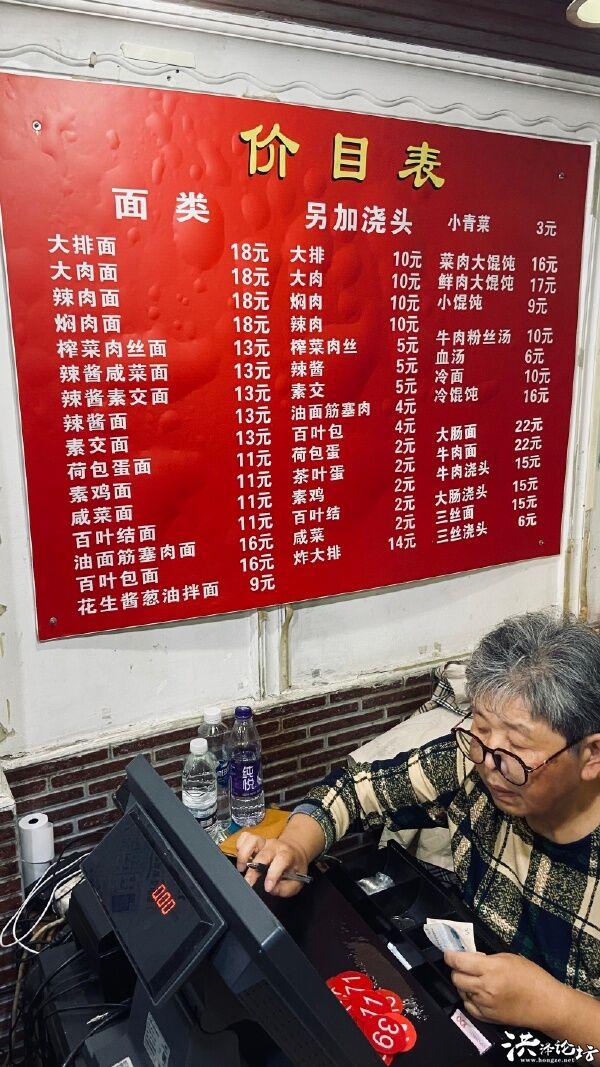 价目表
面类
大排面 18元
大肉面 18元
辣肉面 18元
焖肉面 18元
榨菜肉丝面 13元
辣酱咸菜面 13元
辣酱素交面 13元
辣酱面 13元
素交面 13元
荷包蛋面 11元
素鸡面 11元
咸菜面 11元
百叶结面 11元
油面筋塞肉面 16元
百叶包面 16元
花生酱葱油拌面 9元
另加浇头
大排 10元
大肉 10元
焖肉 10元
辣肉 10元
榨菜肉丝 5元
辣酱 5元
素交 5元
油面筋塞肉 4元
百叶包 4元
荷包蛋 2元
茶叶蛋 2元
素鸡 2元
百叶结 2元
咸菜 2元
炸大排 14元
小青菜 3元
菜肉大馄饨 16元
鲜肉大馄饨 17元
小馄饨 9元
牛肉粉丝汤 10元
血汤 6元
冷面 10元
冷馄饨 16元
大肠面 22元
牛肉面 22元
牛肉浇头 15元
大肠浇头 15元
三丝面 15元
三丝浇头 6元
纯悦
0.00
39
洪泽论坛
www.hongze.net